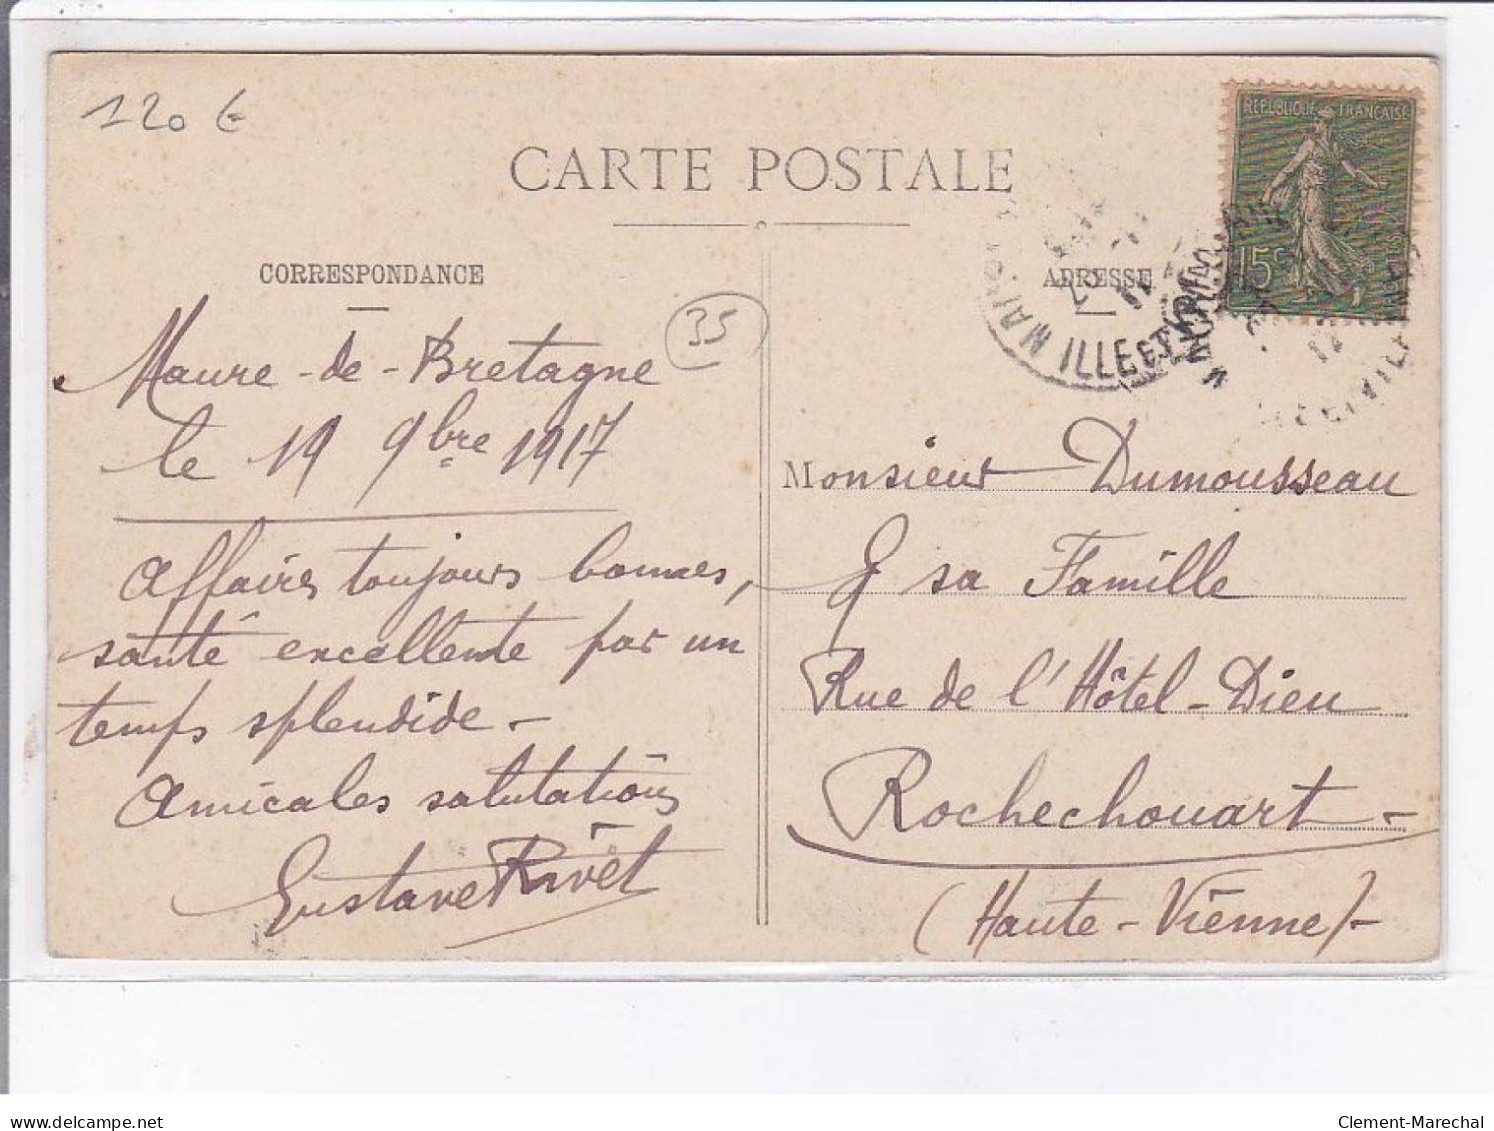 120 €
CARTE POSTALE
CORRESPONDANCE
ADRESSE
REPUBLIQUE FRANÇAISE
15c
ILLE ET
35
Maure-de-Bretagne
le 19 9bre 1917
Affaires toujours bonnes,
santé excellente par un
temps splendide -
Amicales salutations
Gustave Rivet
Monsieur Dumousseau
& sa Famille
Rue de l'Hôtel-Dieu
Rochechouart -
(Haute-Vienne)-
delcampe.net
Clement-Marechal